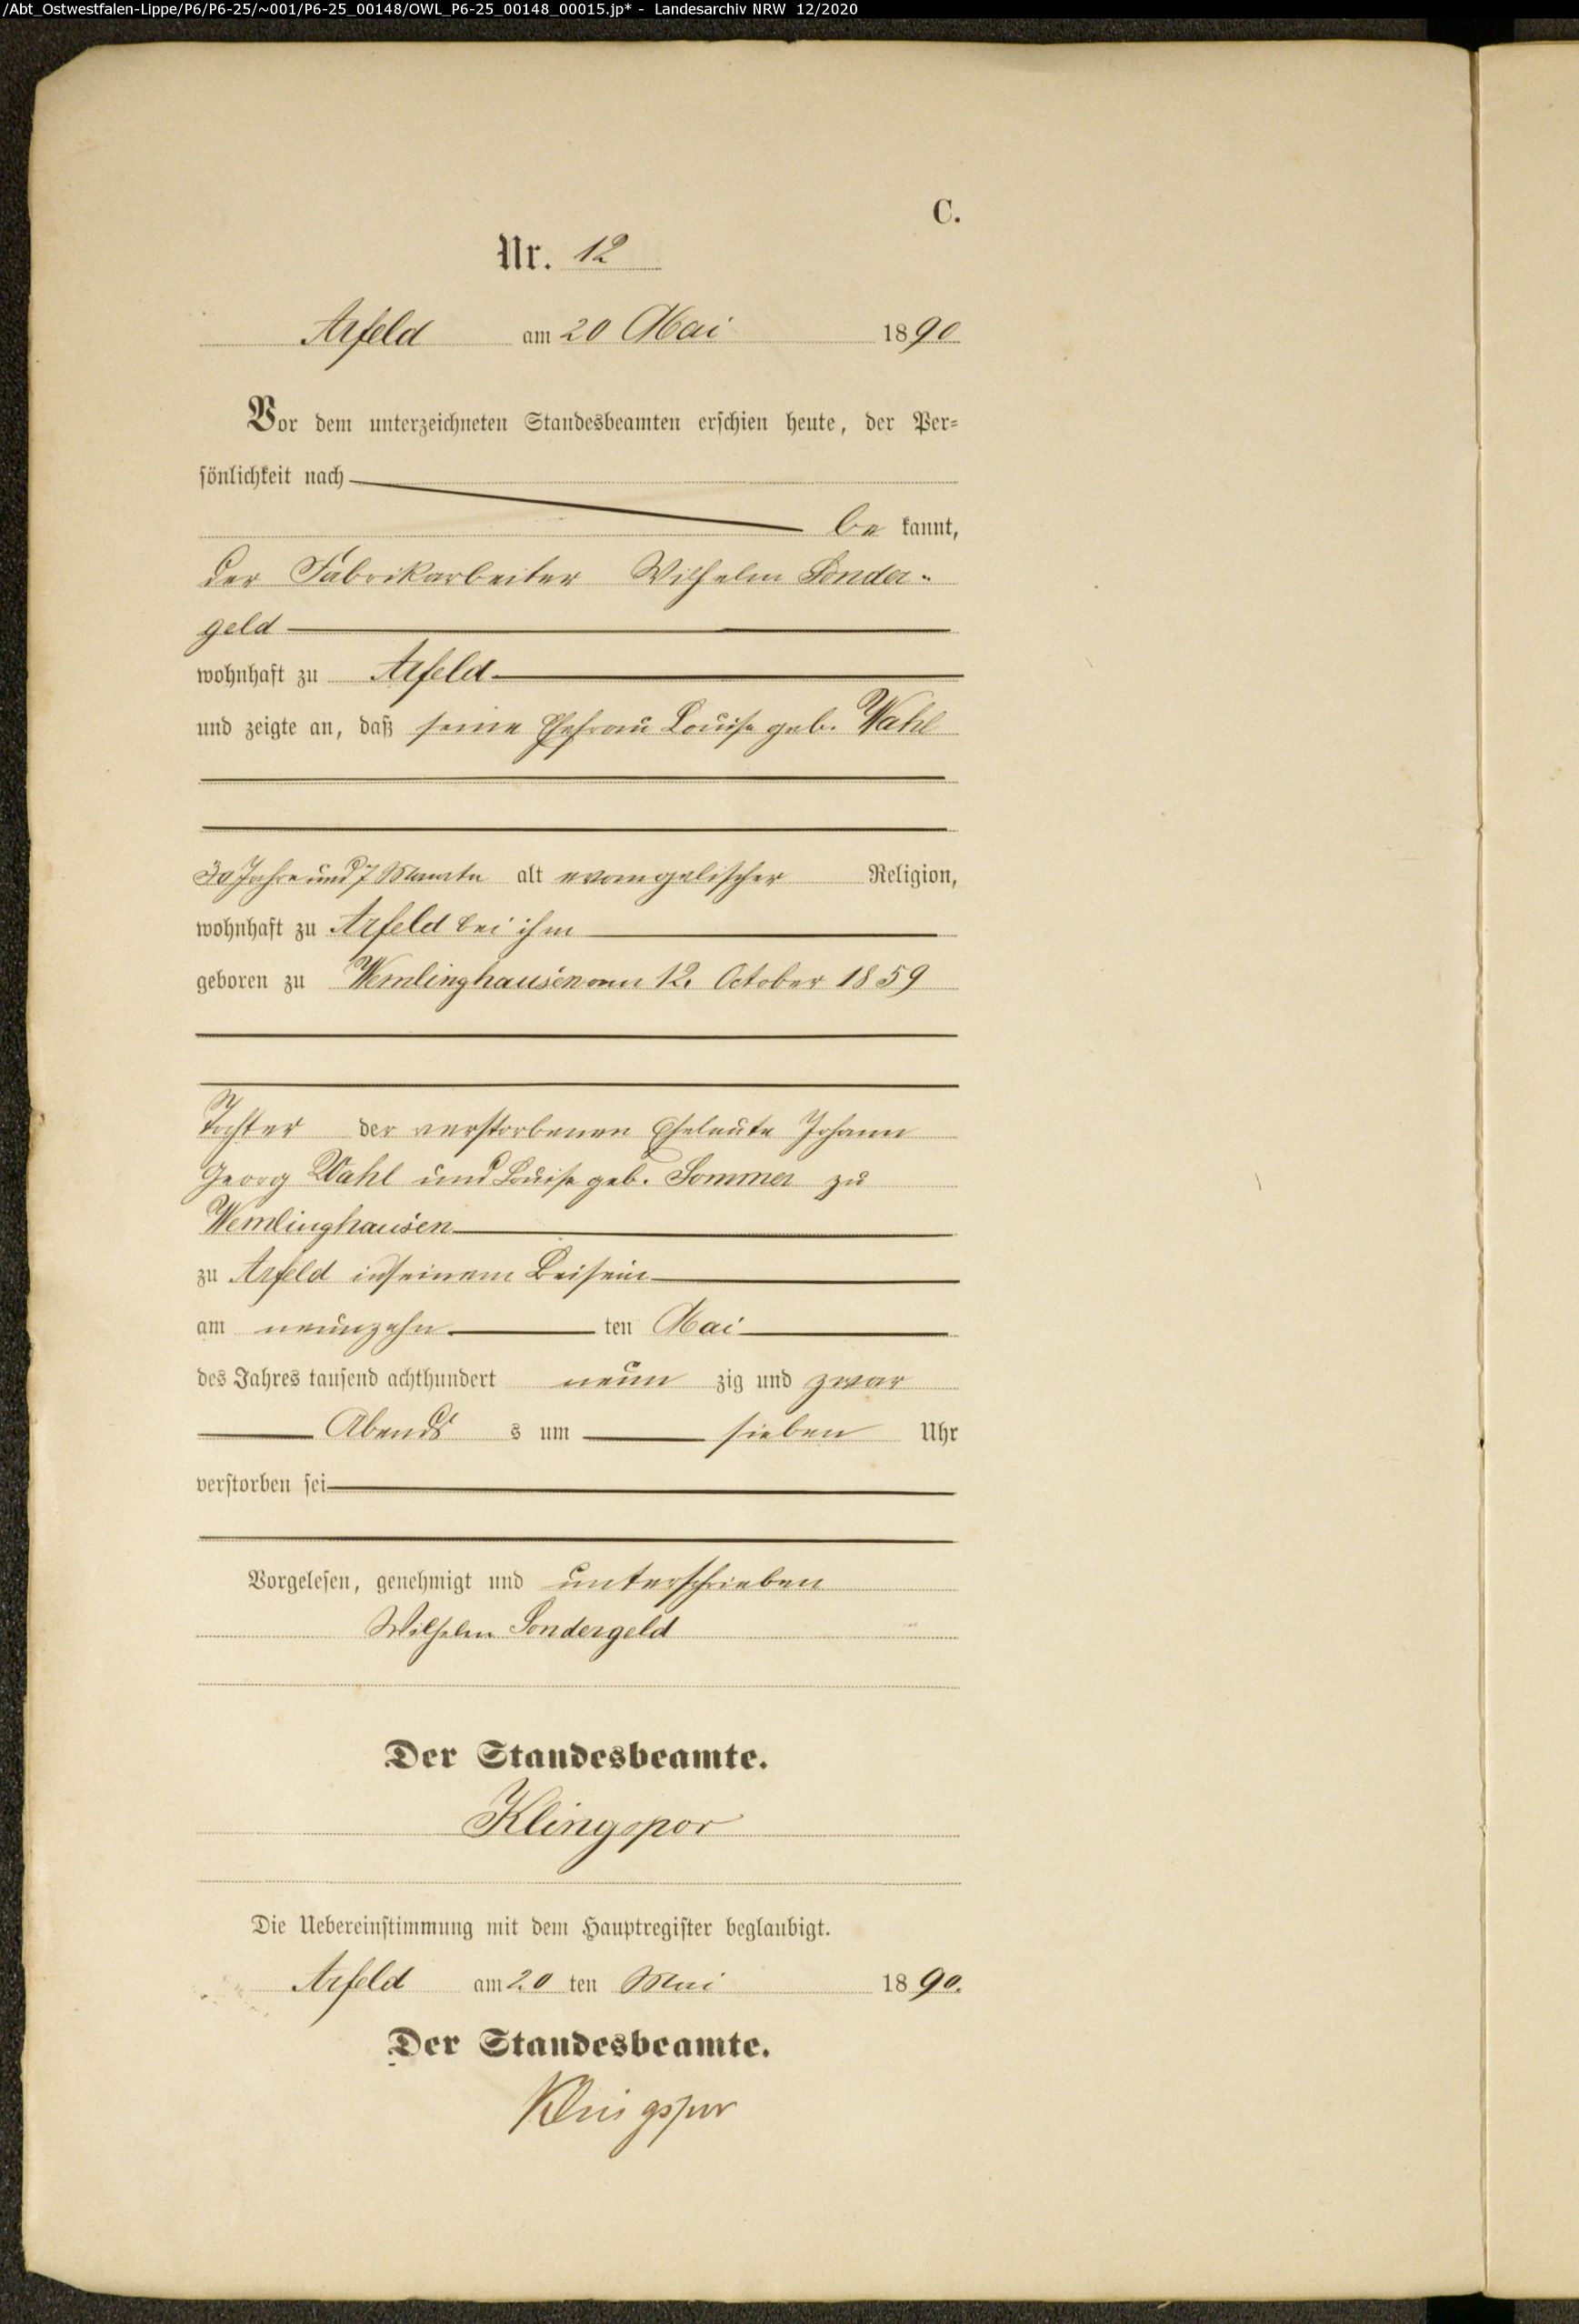 /Abt_Ostwestfalen-Lippe/P6/P6-25/~001/P6-25_00148/OWL_P6-25_00148_00015.jp* - Landesarchiv NRW 12/2020
C.
Nr. 12
Arfeld am 20 Mai 1890
Vor dem unterzeichneten Standesbeamten erschien heute, der Per=
sönlichkeit nach
be kannt,
der Fabrikarbeiter Wilhelm Sonder-
geld
wohnhaft zu Arfeld
und zeigte an, daß seine Ehefrau Louise geb. Wahl
30 Jahre und 7 Monate alt evangelischer Religion,
wohnhaft zu Arfeld bei ihm
geboren zu Wemlinghausen am 12. October 1859
Tochter der verstorbenen Eheleute Johann
Georg Wahl und Louise geb. Sommer zu
Wemlinghausen
zu Arfeld in seinem Beisein
am neunzehn ten Mai
des Jahres tausend achthundert neun zig und zwar
Abends s um sieben Uhr
verstorben sei
Vorgelesen, genehmigt und unterschrieben
Wilhelm Sondergeld
Der Standesbeamte.
Klingspor
Die Uebereinstimmung mit dem Hauptregister beglaubigt.
Arfeld am 20 ten Mai 1890.
Der Standesbeamte.
Klingspor